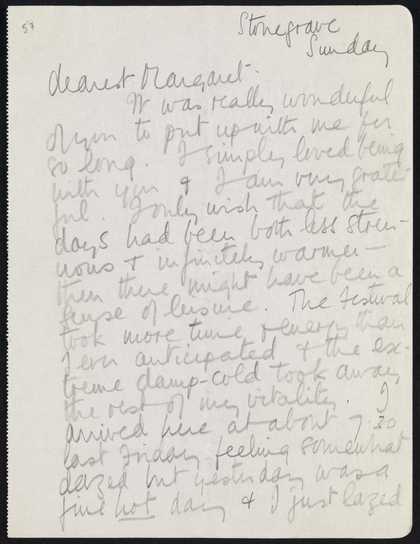 57
Stonegrave
Sunday
dearest Margaret.
It was really wonderful
of you to put up with me for
so long. I simply loved being
with you & I am very grate-
ful. I only wish that the
days had been both less stren-
uous & infinitely warmer —
then there might have been a
sense of leisure. The festival
took more time & energy than
I ever anticipated & the ex-
treme damp-cold took away
the rest of my vitality. I
arrived here at about 7.30
last Friday feeling somewhat
dazed but yesterday was a
fine hot day & I just lazed